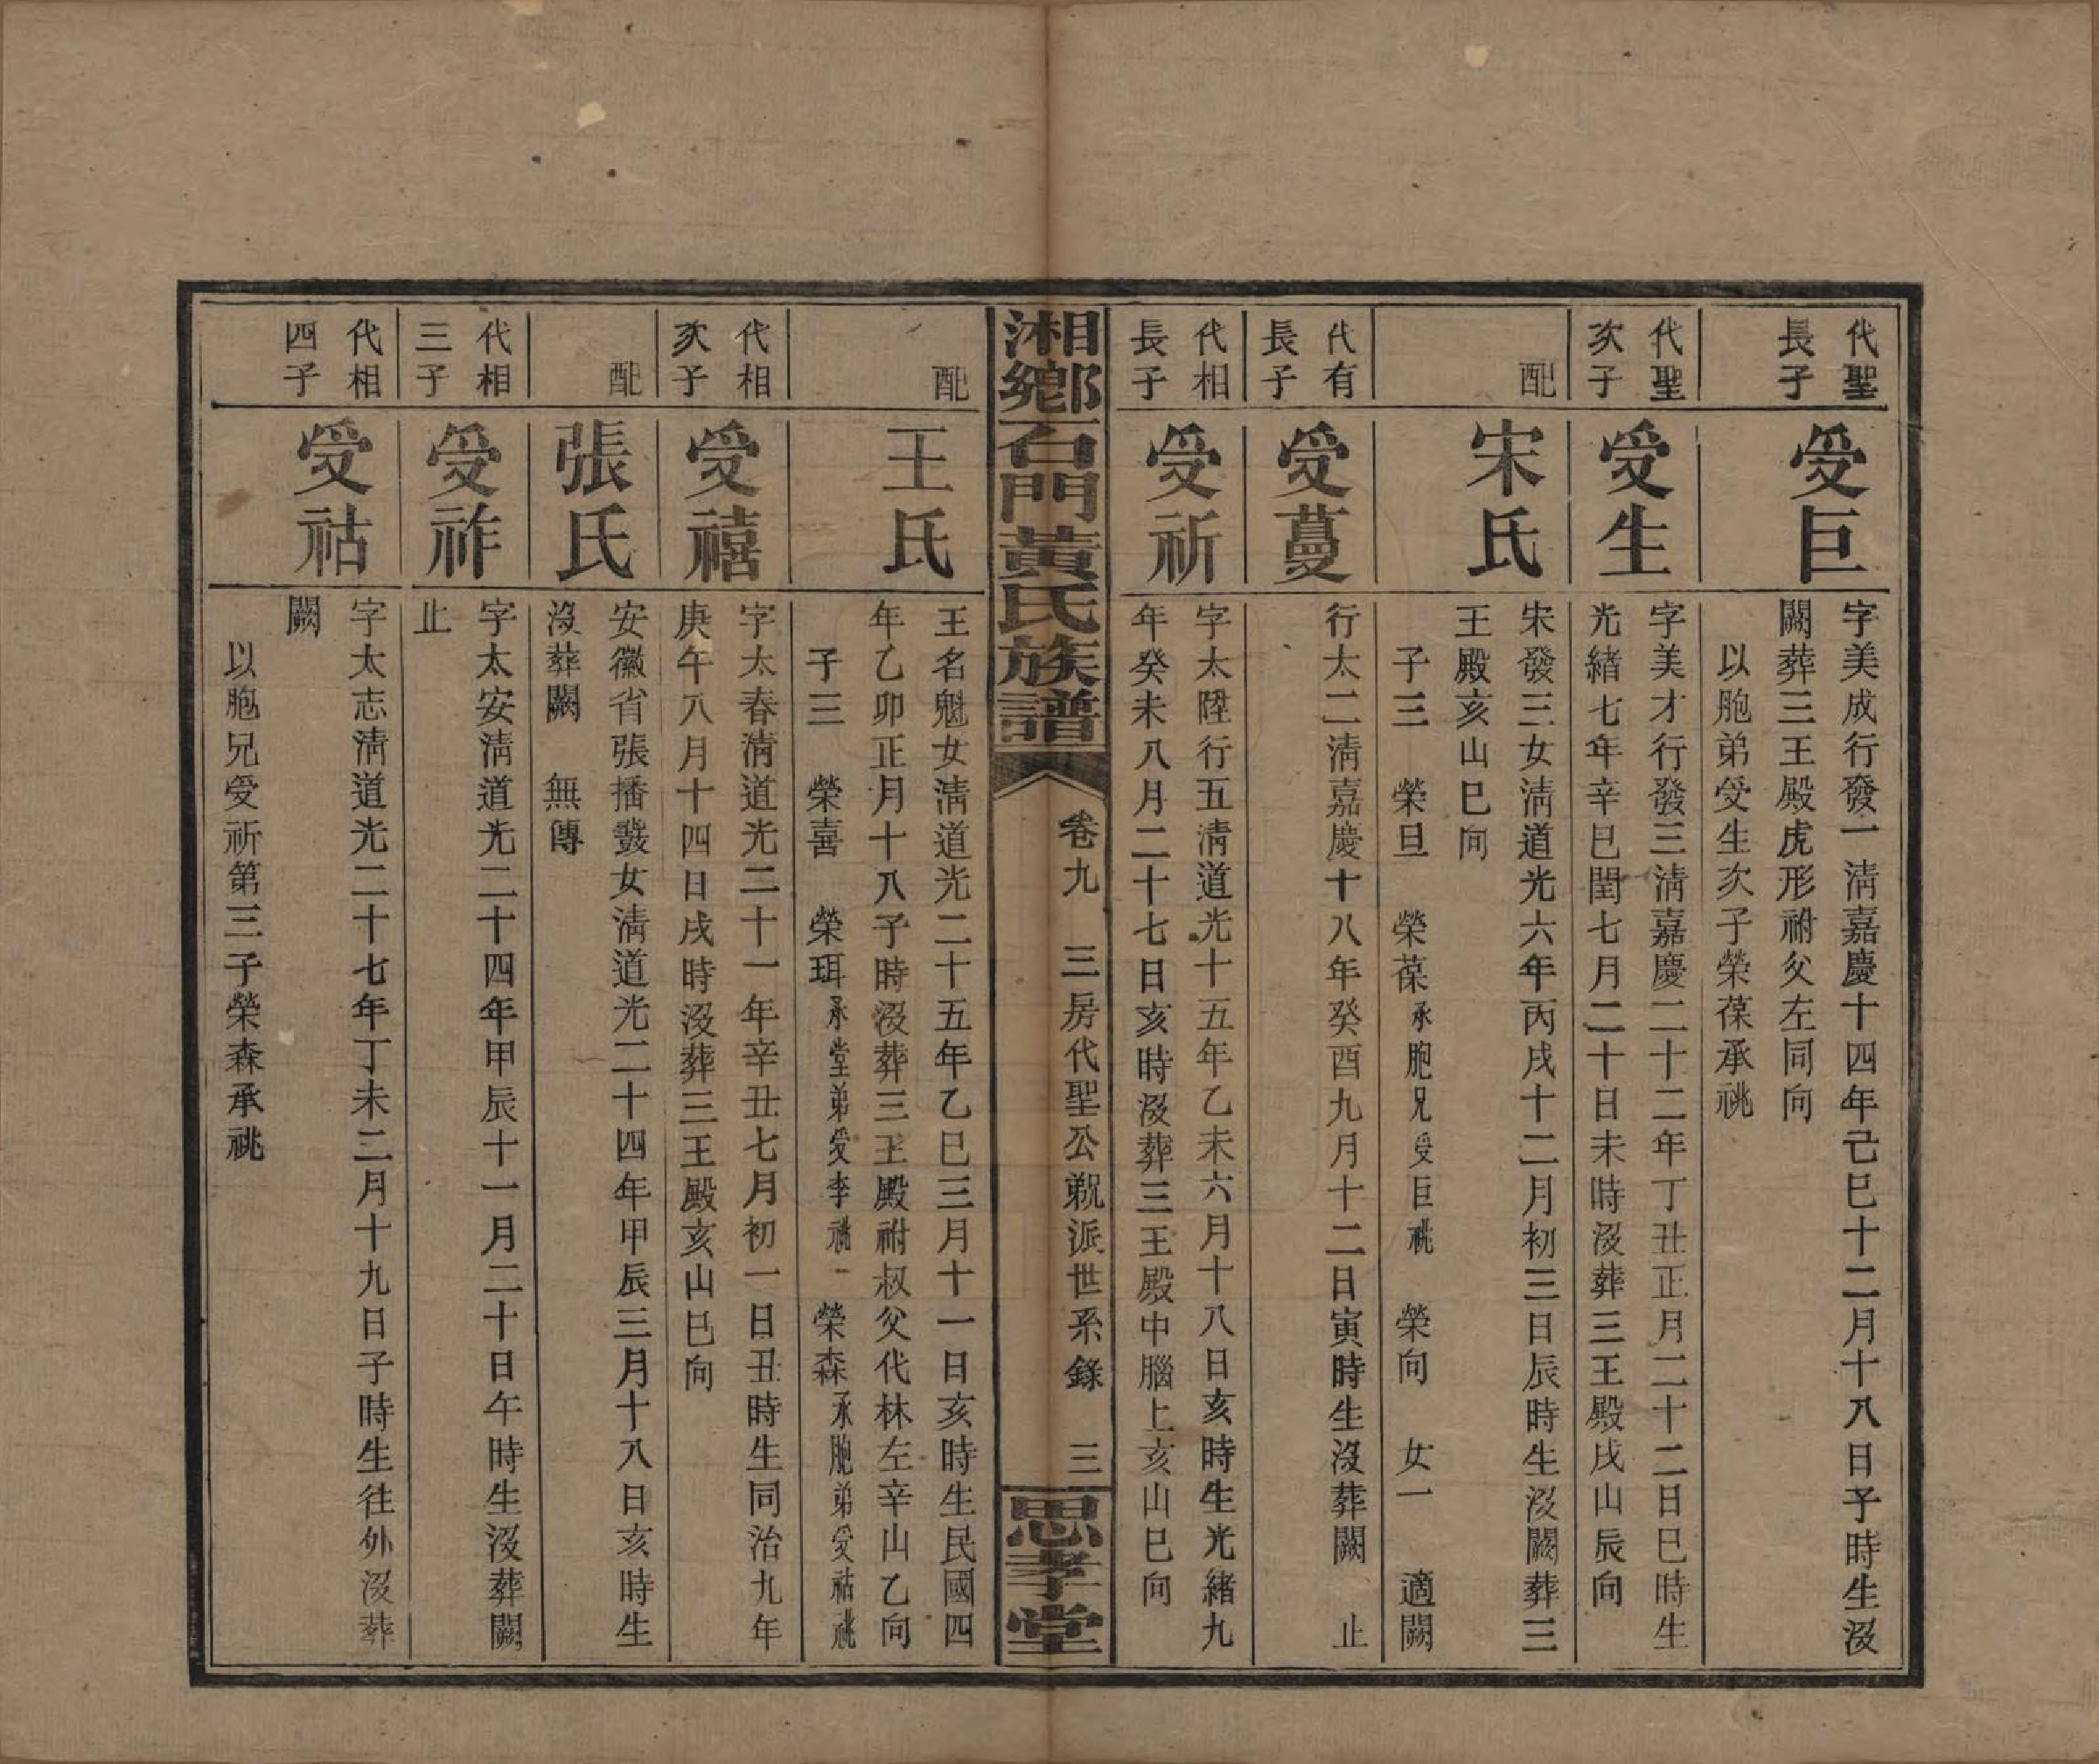 代聖
長子
受巨
字美成行發一淸嘉慶十四年己巳十二月十八日子時生沒
闕葬三王殿虎形祔父左同向
以胞弟受生次子榮葆承祧
代聖
次子
受生
字美才行發三淸嘉慶二十二年丁丑正月二十二日巳時生
光緒七年辛巳閏七月二十日未時沒葬三王殿戌山辰向
配
宋氏
宋發三女淸道光六年丙戌十二月初三日辰時生沒闕葬三
王殿亥山巳向
子三　榮旦　榮葆承胞兄受巨祧　榮向　女一　適闕
代有
長子
受蔓
行太二淸嘉慶十八年癸酉九月十二日寅時生沒葬闕　止
代相
長子
受祈
字太陞行五淸道光十五年乙未六月十八日亥時生光緒九
年癸未八月二十七日亥時沒葬三王殿中腦上亥山巳向
湘鄉石門黃氏族譜
卷九　三房代聖公覡派世系錄　三
思孝堂
配
王氏
王名魁女淸道光二十五年乙巳三月十一日亥時生民國四
年乙卯正月十八子時沒葬三王殿祔叔父代林左辛山乙向
子三　榮喜　榮珥承堂弟受李祧一　榮森承胞弟受祜祧
代相
次子
受禧
字太春淸道光二十一年辛丑七月初一日丑時生同治九年
庚午八月十四日戌時沒葬三王殿亥山巳向
配
張氏
安徽省張播發女淸道光二十四年甲辰三月十八日亥時生
沒葬闕　無傳
代相
三子
受祚
字太安淸道光二十四年甲辰十一月二十日午時生沒葬闕
止
代相
四子
受祜
字太志淸道光二十七年丁未二月十九日子時生往外沒葬
闕
以胞兄受祈第三子榮森承祧